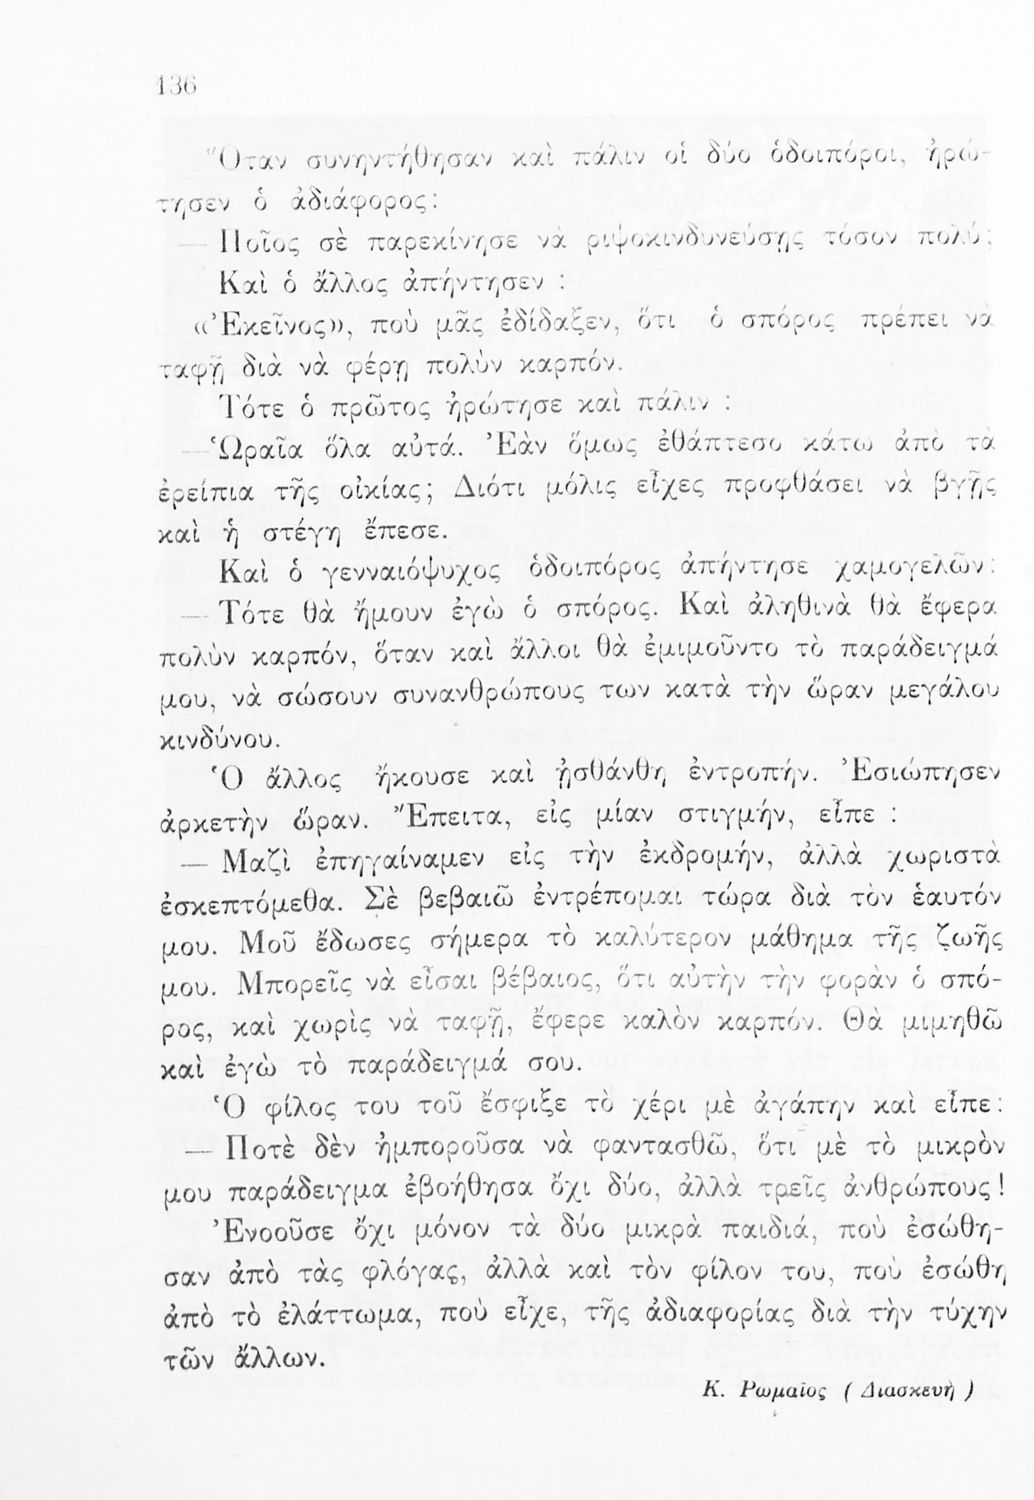 136
Ὅταν συνηντήθησαν καὶ πάλιν οἱ δύο ὁδοιπόροι, ἠρώ-
τησεν ὁ ἀδιάφορος:
— Ποῖος σὲ παρεκίνησε νὰ ριψοκινδυνεύσῃς τόσον πολύ;
Καὶ ὁ ἄλλος ἀπήντησεν :
«Ἐκεῖνος», ποὺ μᾶς ἐδίδαξεν, ὅτι ὁ σπόρος πρέπει νὰ
ταφῇ διὰ νὰ φέρῃ πολὺν καρπόν.
Τότε ὁ πρῶτος ἠρώτησε καὶ πάλιν :
— Ὡραῖα ὅλα αὐτά. Ἐὰν ὅμως ἐθάπτεσο κάτω ἀπὸ τὰ
ἐρείπια τῆς οἰκίας; Διότι μόλις εἶχες προφθάσει νὰ βγῇς
καὶ ἡ στέγη ἔπεσε.
Καὶ ὁ γενναιόψυχος ὁδοιπόρος ἀπήντησε χαμογελῶν:
— Τότε θὰ ἤμουν ἐγὼ ὁ σπόρος. Καὶ ἀληθινὰ θὰ ἔφερα
πολὺν καρπόν, ὅταν καὶ ἄλλοι θὰ ἐμιμοῦντο τὸ παράδειγμά
μου, νὰ σώσουν συνανθρώπους των κατὰ τὴν ὥραν μεγάλου
κινδύνου.
Ὁ ἄλλος ἤκουσε καὶ ᾐσθάνθη ἐντροπήν. Ἐσιώπησεν
ἀρκετὴν ὥραν. Ἔπειτα, εἰς μίαν στιγμήν, εἶπε :
— Μαζὶ ἐπηγαίναμεν εἰς τὴν ἐκδρομήν, ἀλλὰ χωριστὰ
ἐσκεπτόμεθα. Σὲ βεβαιῶ ἐντρέπομαι τώρα διὰ τὸν ἑαυτόν
μου. Μοῦ ἔδωσες σήμερα τὸ καλύτερον μάθημα τῆς ζωῆς
μου. Μπορεῖς νὰ εἶσαι βέβαιος, ὅτι αὐτὴν τὴν φορὰν ὁ σπό-
ρος, καὶ χωρὶς νὰ ταφῇ, ἔφερε καλὸν καρπόν. Θὰ μιμηθῶ
καὶ ἐγὼ τὸ παράδειγμά σου.
Ὁ φίλος του τοῦ ἔσφιξε τὸ χέρι μὲ ἀγάπην καὶ εἶπε:
— Ποτὲ δὲν ἠμποροῦσα νὰ φαντασθῶ, ὅτι μὲ τὸ μικρὸν
μου παράδειγμα ἐβοήθησα ὄχι δύο, ἀλλὰ τρεῖς ἀνθρώπους!
Ἐνοοῦσε ὄχι μόνον τὰ δύο μικρὰ παιδιά, ποὺ ἐσώθη-
σαν ἀπὸ τὰς φλόγας, ἀλλὰ καὶ τὸν φίλον του, ποὺ ἐσώθη
ἀπὸ τὸ ἐλάττωμα, ποὺ εἶχε, τῆς ἀδιαφορίας διὰ τὴν τύχην
τῶν ἄλλων.
Κ. Ρωμαῖος ( Διασκευὴ )